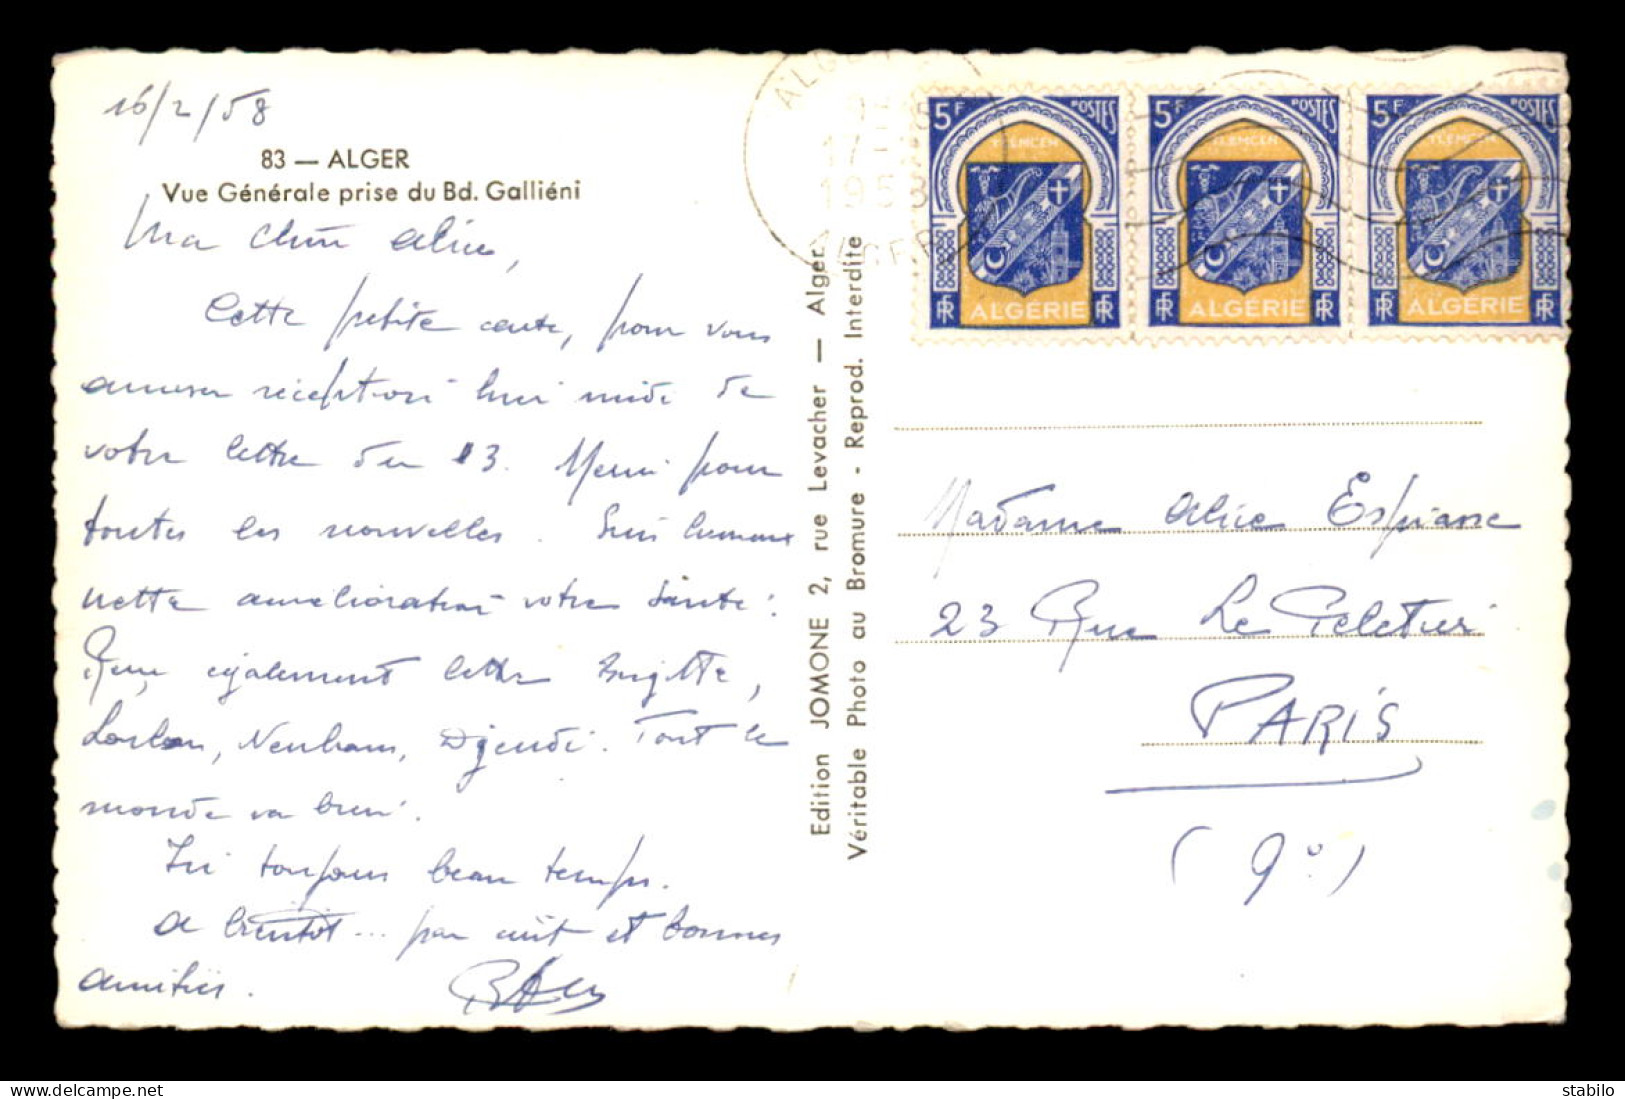 16/2/58
83 — ALGER
Vue Générale prise du Bd. Galliéni
Ma chère Alice,
Cette petite carte, pour vous
accuser réception hier midi de
votre lettre du 13. Merci pour
toutes les nouvelles. Suis heureux
nette amélioration votre santé.
Reçu également lettre Brigitte,
Djendi. Tout le
monde va bien.
Ici toujours beau temps.
A bientôt... par écrit et bonnes
amitiés.
Edition JOMONE 2, rue Levacher — Alger
Véritable Photo au Bromure - Reprod. Interdite
ALGER
17
1958
ALGER
5F POSTES
TLEMCEN
RF ALGÉRIE RF
5F POSTES
TLEMCEN
RF ALGÉRIE RF
5F POSTES
TLEMCEN
RF ALGÉRIE RF
Madame Alice Espiasse
23 Rue Le Peletier
PARIS
(9e)
stabilo